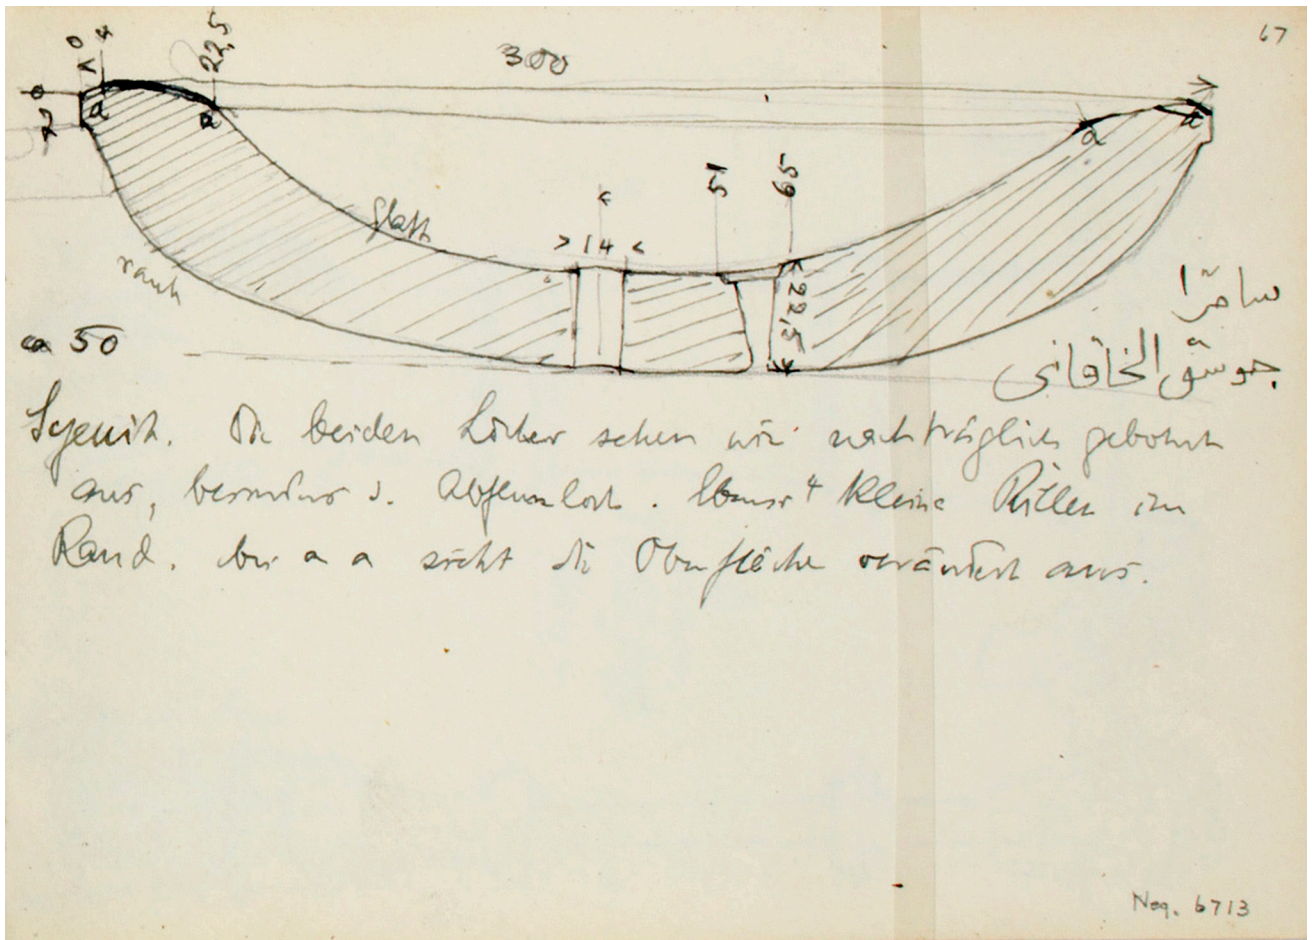 67
300
0 4 22,5
a a a a
glatt
rauh
> 14 <
51 65
22,5
ca 50
سامرّا
جوسق الخاقانى
Syenit. Die beiden Löcher sehen wie nachträglich gebohrt
aus, besonders d. Abflussloch. Ebenso 4 kleine Rillen im
Rand. bei a a sieht die Oberfläche verändert aus.
Neg. 6713